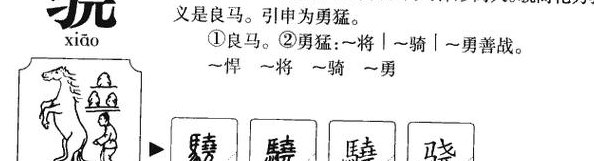 骁
xiāo
义是良马。引申为勇猛。
①良马。②勇猛:～将｜～骑｜～勇善战。
～悍 ～将 ～骑 ～勇
驍 驍 驍 骁